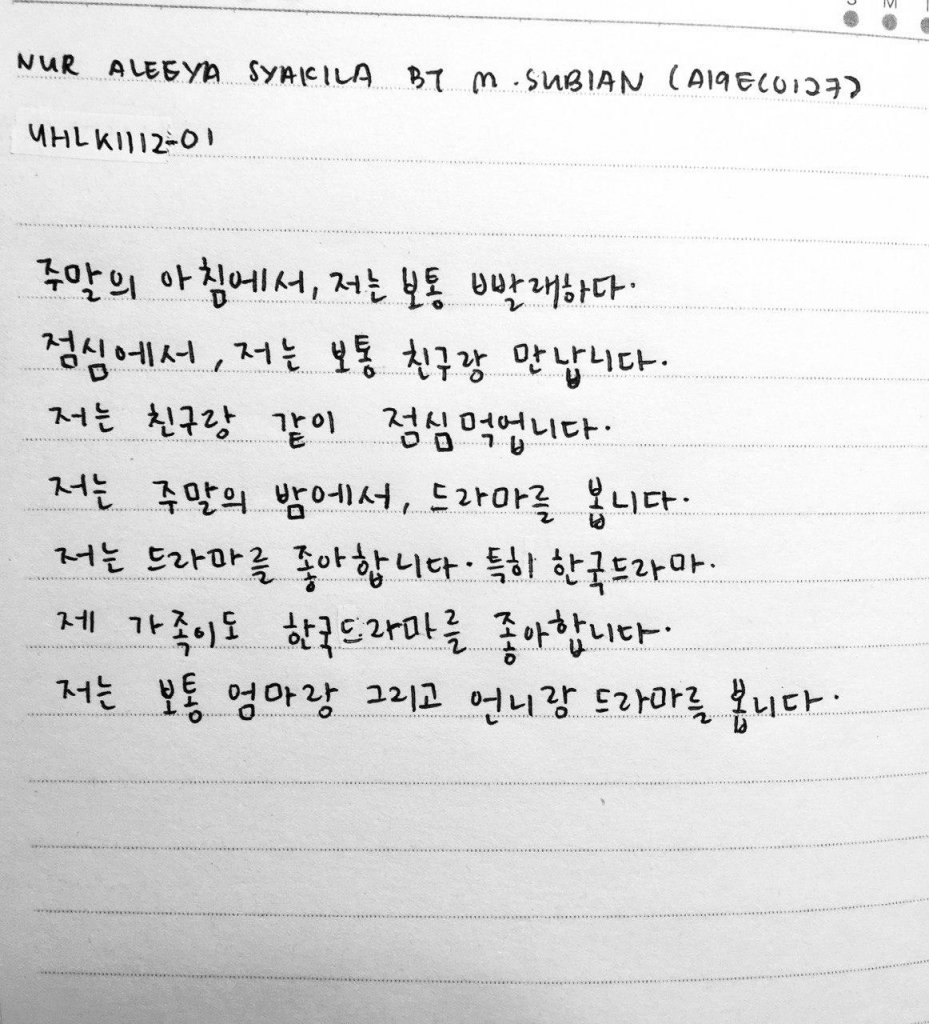 S M
NUR ALEEYA SYAKILA BT M. SUBIAN (A19EC0127)
UHLK1112-01
주말의 아침에서, 저는 보통 빨래하다.
점심에서, 저는 보통 친구랑 만납니다.
저는 친구랑 같이 점심먹업니다.
저는 주말의 밤에서, 드라마를 봅니다.
저는 드라마를 좋아합니다. 특히 한국드라마.
제 가족이도 한국드라마를 좋아합니다.
저는 보통 엄마랑 그리고 언니랑 드라마를 봅니다.